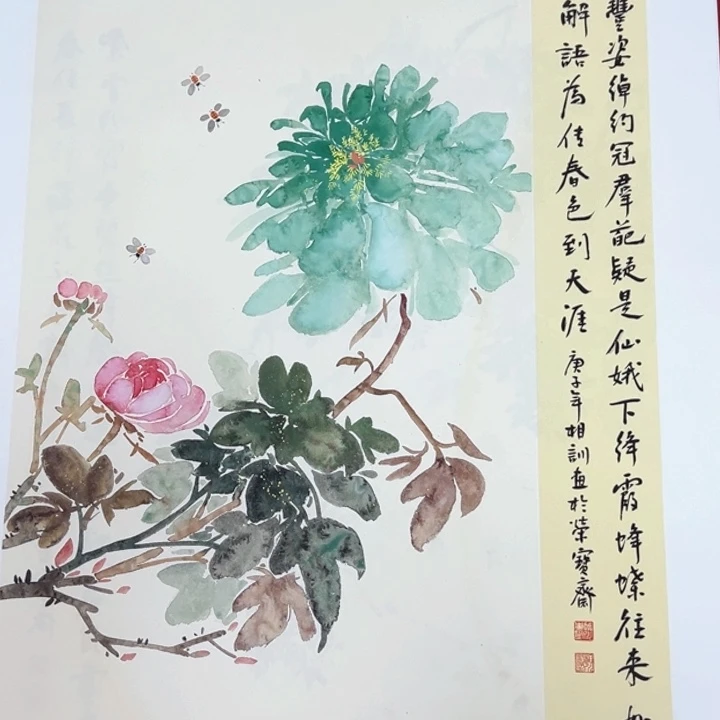 豐姿綽約冠羣葩疑是仙娥下絳霞蜂蝶往來
解語為傳春色到天涯庚子年相訓画於榮寶齋